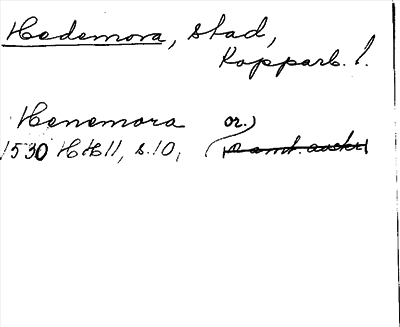 Hedemora, stad,
Kopparb. l.
Henemora or.)
1530 HH II, s. 10,